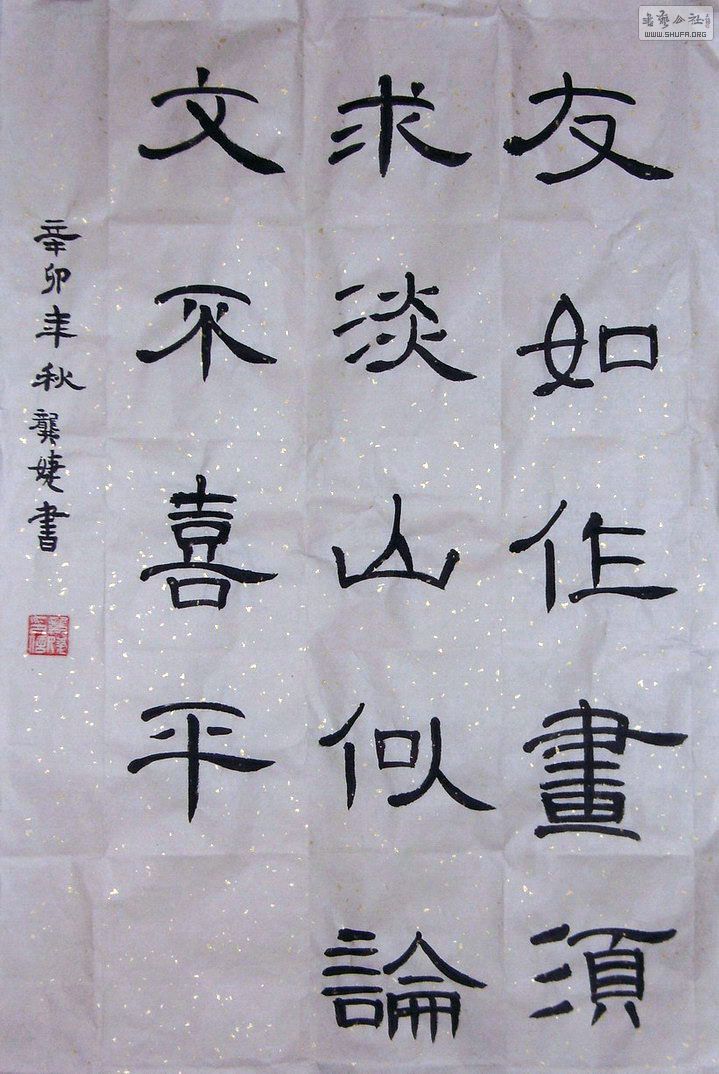 友如作畫須
求淡山似論
文不喜平
辛卯年秋龔婕書
書藝公社
WWW.SHUFA.ORG